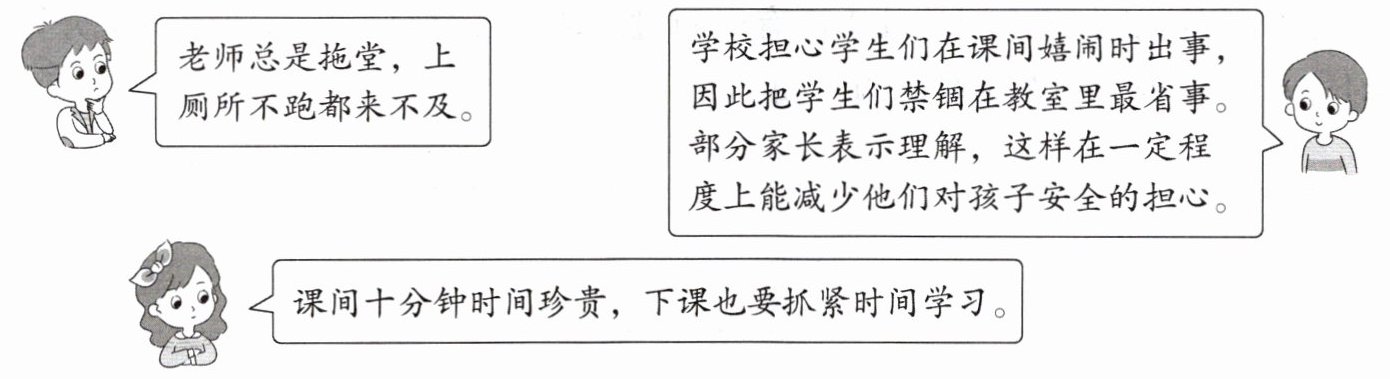 老师总是拖堂，上
厕所不跑都来不及。
学校担心学生们在课间嬉闹时出事，
因此把学生们禁锢在教室里最省事。
部分家长表示理解，这样在一定程
度上能减少他们对孩子安全的担心。
课间十分钟时间珍贵，下课也要抓紧时间学习。